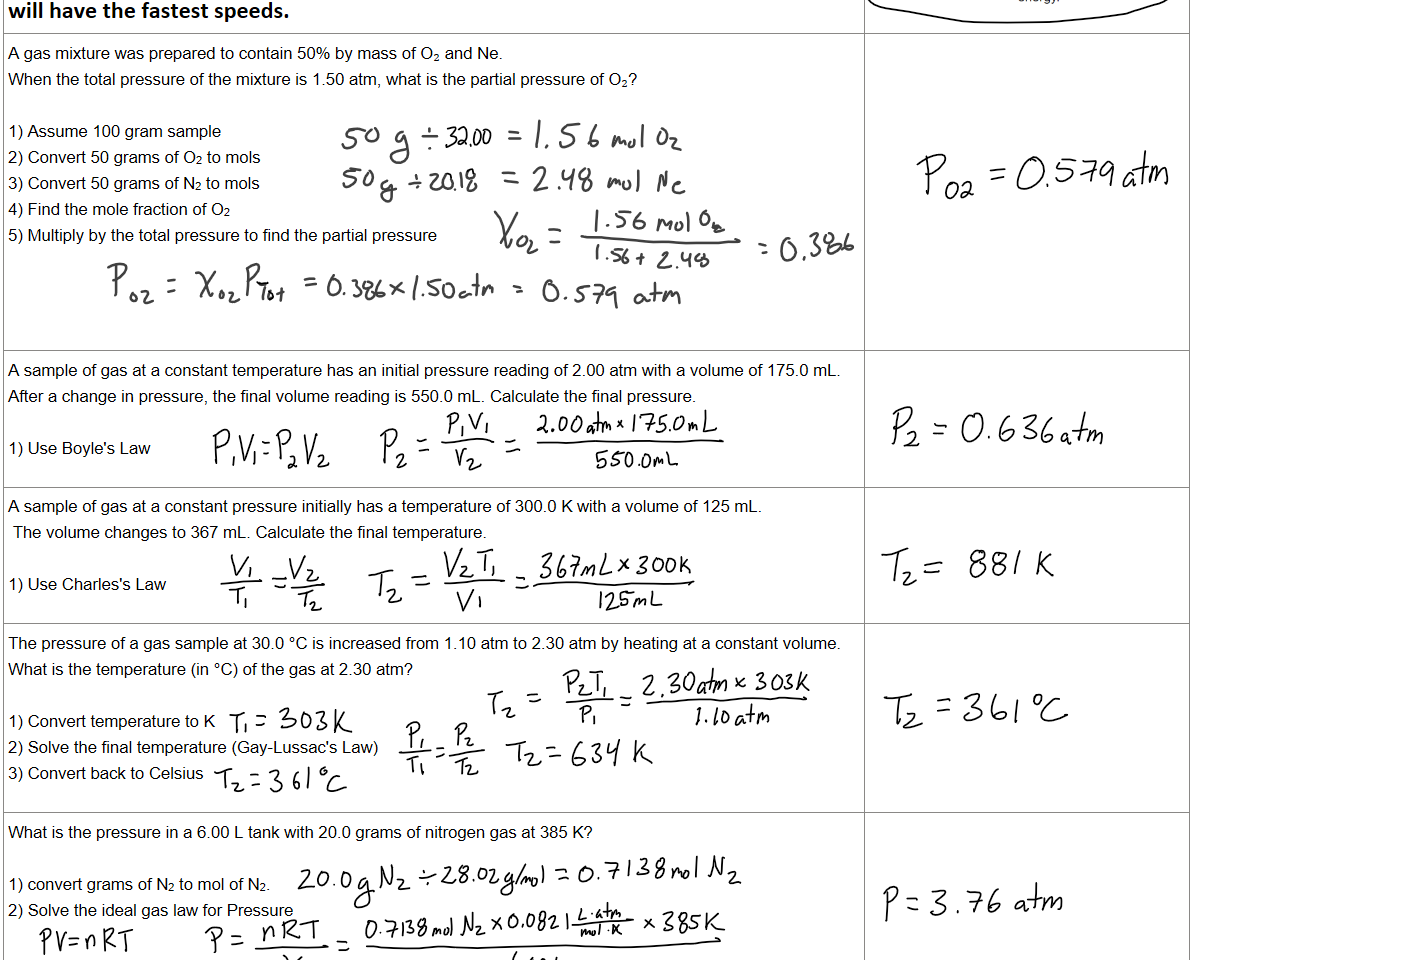 will have the fastest speeds.
A gas mixture was prepared to contain 50% by mass of O₂ and Ne.
When the total pressure of the mixture is 1.50 atm, what is the partial pressure of O₂?
1) Assume 100 gram sample
50 g ÷ 32.00 = 1.56 mol O2
2) Convert 50 grams of O₂ to mols
3) Convert 50 grams of N₂ to mols
50g ÷ 20.18 = 2.48 mol Ne
4) Find the mole fraction of O₂
5) Multiply by the total pressure to find the partial pressure
X_O2 = (1.56 mol O2)/(1.56 + 2.48) = 0.386
P_O2 = X_O2 P_Tot = 0.386 × 1.50atm = 0.579 atm
P_O2 = 0.579 atm
A sample of gas at a constant temperature has an initial pressure reading of 2.00 atm with a volume of 175.0 mL.
After a change in pressure, the final volume reading is 550.0 mL. Calculate the final pressure.
1) Use Boyle's Law
P₁V₁=P₂V₂ P₂ = P₁V₁/V₂ = (2.00 atm × 175.0mL)/(550.0mL)
P₂ = 0.636 atm
A sample of gas at a constant pressure initially has a temperature of 300.0 K with a volume of 125 mL.
The volume changes to 367 mL. Calculate the final temperature.
1) Use Charles's Law
V₁/T₁ = V₂/T₂ T₂ = V₂T₁/V₁ = (367mL × 300K)/(125mL)
T₂ = 881 K
The pressure of a gas sample at 30.0 °C is increased from 1.10 atm to 2.30 atm by heating at a constant volume.
What is the temperature (in °C) of the gas at 2.30 atm?
T₂ = P₂T₁/P₁ = (2.30atm × 303K)/(1.10 atm)
1) Convert temperature to K T₁ = 303K
2) Solve the final temperature (Gay-Lussac's Law) P₁/T₁ = P₂/T₂ T₂ = 634 K
3) Convert back to Celsius T₂ = 361°C
T₂ = 361°C
What is the pressure in a 6.00 L tank with 20.0 grams of nitrogen gas at 385 K?
1) convert grams of N₂ to mol of N₂.
20.0g N₂ ÷ 28.02g/mol = 0.7138 mol N₂
2) Solve the ideal gas law for Pressure
PV=nRT P = nRT = 0.7138 mol N₂ × 0.0821 L·atm/mol·K × 385K
P = 3.76 atm